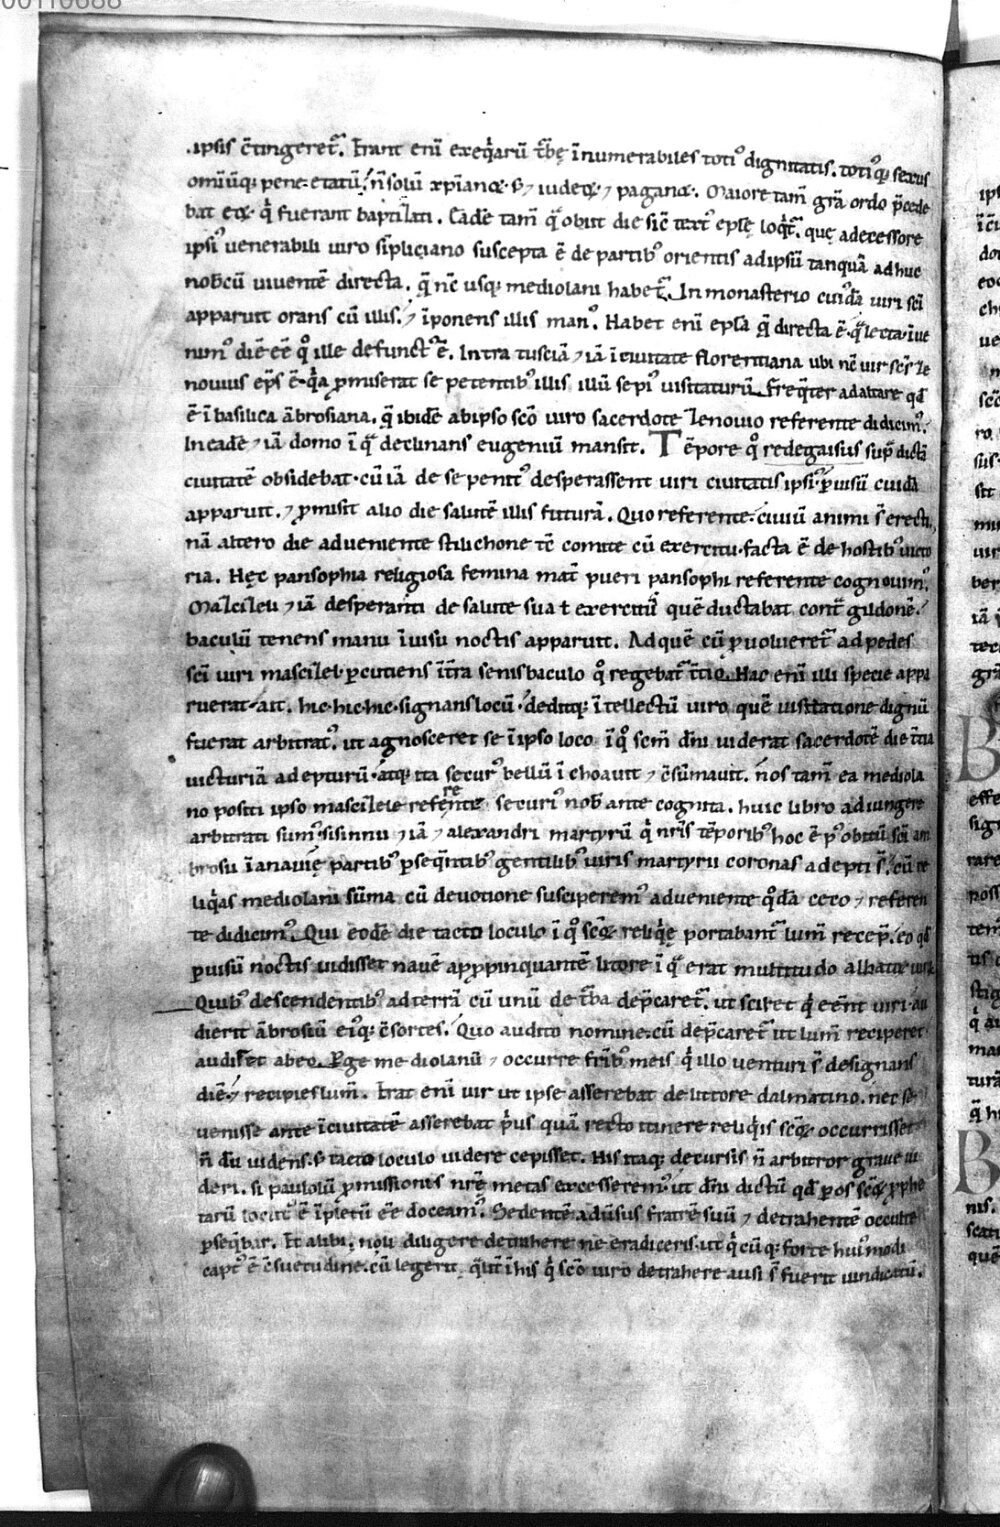 00110688
ipsis c̄tingeret᷑. Erant eni᷑ exeq̇arū t᷑bę īnumerabiles toti᷒ dignitatis. toti᷒q; sexus
omiūq; pene etatū. n̄ solū xp̄ianoꝝ. s; iudeoꝝ ⁊ paganoꝝ. Maiore tam̄ grā ordo p̄cede
bat eoꝝ q̇ fuerant baptizati. Eadē tam̄ q̄ obiit die sic̄ text᷒ ep̄lę loq̇t᷑. quę a decessore
ipsi᷒ venerabili uiro sīpliciano suscepta ē de partib᷒ orientis ad ipsū tanquā adhuc
nobcū uiuentē directa. q̄ nc̄ usq; mediolani habet᷑. In monasterio cui᷒dā uiri sc̄i
apparuit orans cū illis. ⁊ īponens illis man᷒. Habet enī epl̄a q̄ directa ē. q̄ lecta īue
nim᷒ diē eē q° ille defunct᷒ ē. Intra tusciā ⁊iā ī ciuitate florentiana ubi nc̄ uir sc̄s ze
nouius ep̄s ē. q̇a ꝓmiserat se petentib᷒ illis illū sepi᷒ uisitaturū. Freq̄ter ad altare qd̄
ē ī basilica ābrosiana. q̄ ibidē ab ipso sc̄o uiro sacerdote zenouio referente didicim᷒.
In eadē ⁊iā domo ī q̄ declinans eugeniū mansit. Tēpore q° redegaisus sup̄dictā
ciuitatē obsidebat. cū iā de se penit᷒ desperassent uiri ciuitatis ipsi᷒. ꝑ uisū cuidā
apparuit. ⁊ ꝓmisit alio die salutē illis futurā. Quo referente. ciuiū animi s̄ erecti.
nā altero die adueniente stilichone tc̄ comite cū exercitu. facta ē de hostib᷒ uicto
ria. Hęc pansophia religiosa femina mat̄ pueri pansophi referente cognouim᷒.
Mascilzeu ⁊iā desperanti de salute sua ł exercit᷒ quē ductabat cont̄ gildonē.
baculū tenens manu ī uisu noctis apparuit. Ad quē cū ꝓuolueret᷑ ad pedes
sc̄i uiri mascilzel. ꝑcutiens īt̄ra senis baculo q° regebat᷑ t̄tio. Hac enī illi specie appa
ruerat. ait. hic. hic. hic. signans locū. deditq; ītellectū uiro quē uisitatione dignū
fuerat arbitrat᷒. ut agnosceret se ī ipso loco ī q° scm̄ dn̄i uiderat sacerdotē die t̄tia
uicturiā adepturū. atq; ita secur᷒ bellū īchoauit ⁊ c̄sūmauit. nos tam̄ ea mediola
no positi ipso mascilzele referente securi᷒ nob̄ ante cognita. huic libro adiungere
arbitrati sum᷒. sisinnii ⁊iā ⁊ alexandri martyrū q̇ nr̄is tēporib᷒ hoc ē p᷒ obitū sc̄i am
brosii ī anauię partib᷒ ꝑseq̄ntib᷒ gentilib᷒ uiris martyrii coronas adepti s̄. cū re
liq̇as mediolani sūma cū deuotione susciperem᷒ adueniente q°dā ceco ⁊ referen
te didicim᷒. Qui eodē die tacto loculo ī q° scōꝝ reliq̇ę portabant᷑ lum̄ recep̄. eo qd̄
ꝑ uisū noctis uidisset nauē appꝓpinquantē litore ī q̄ erat multitudo albatoꝝ
Quib᷒ descendentib᷒ ad terrā cū unū de t᷑ba dep̄caret᷑. ut sciret q̇ eēnt uiri. au
dierit ābrosiū ei᷒q; c̄sortes. Quo audito nomine. cū dep̄caret᷑ ut lum̄ reciperet.
audisset ab eo. Ꝑge mediolanū ⁊ occurre fr̄ib᷒ meis q̇ illo uenturi s̄ designans
diē. ⁊ recipies lum̄. Erat enī uir ut ipse asserebat de littore dalmatino. nec se
uenisse ante ī ciuitatē asserebat ṗus quā recto itinere reliq̇is scōꝝ occurrisset
n̄ dū uidens. s; tacto loculo uidere cepisset. His itaq; decursis n̄ arbitror graue ui
deri. si paulolū ꝓmissionis nr̄ę metas excesserem᷒. ut dn̄i dictū qd̄ ꝑ os scōꝝ ꝓphe
tarū locut᷒ ē īpletū eē doceam᷒. Sedentē aduersus fratrē suū ⁊ detrahentē occulte
ꝑseq̄bar. Et alibi. noli diligere detrahere ne eradiceris. ut q̇ cūq; forte hui᷒modi
capt᷒ ē c̄suetudine. cū legerit q̇lit̄ ī his q̇ sc̄o uiro detrahere ausi s̄ fuerit uindicatū.